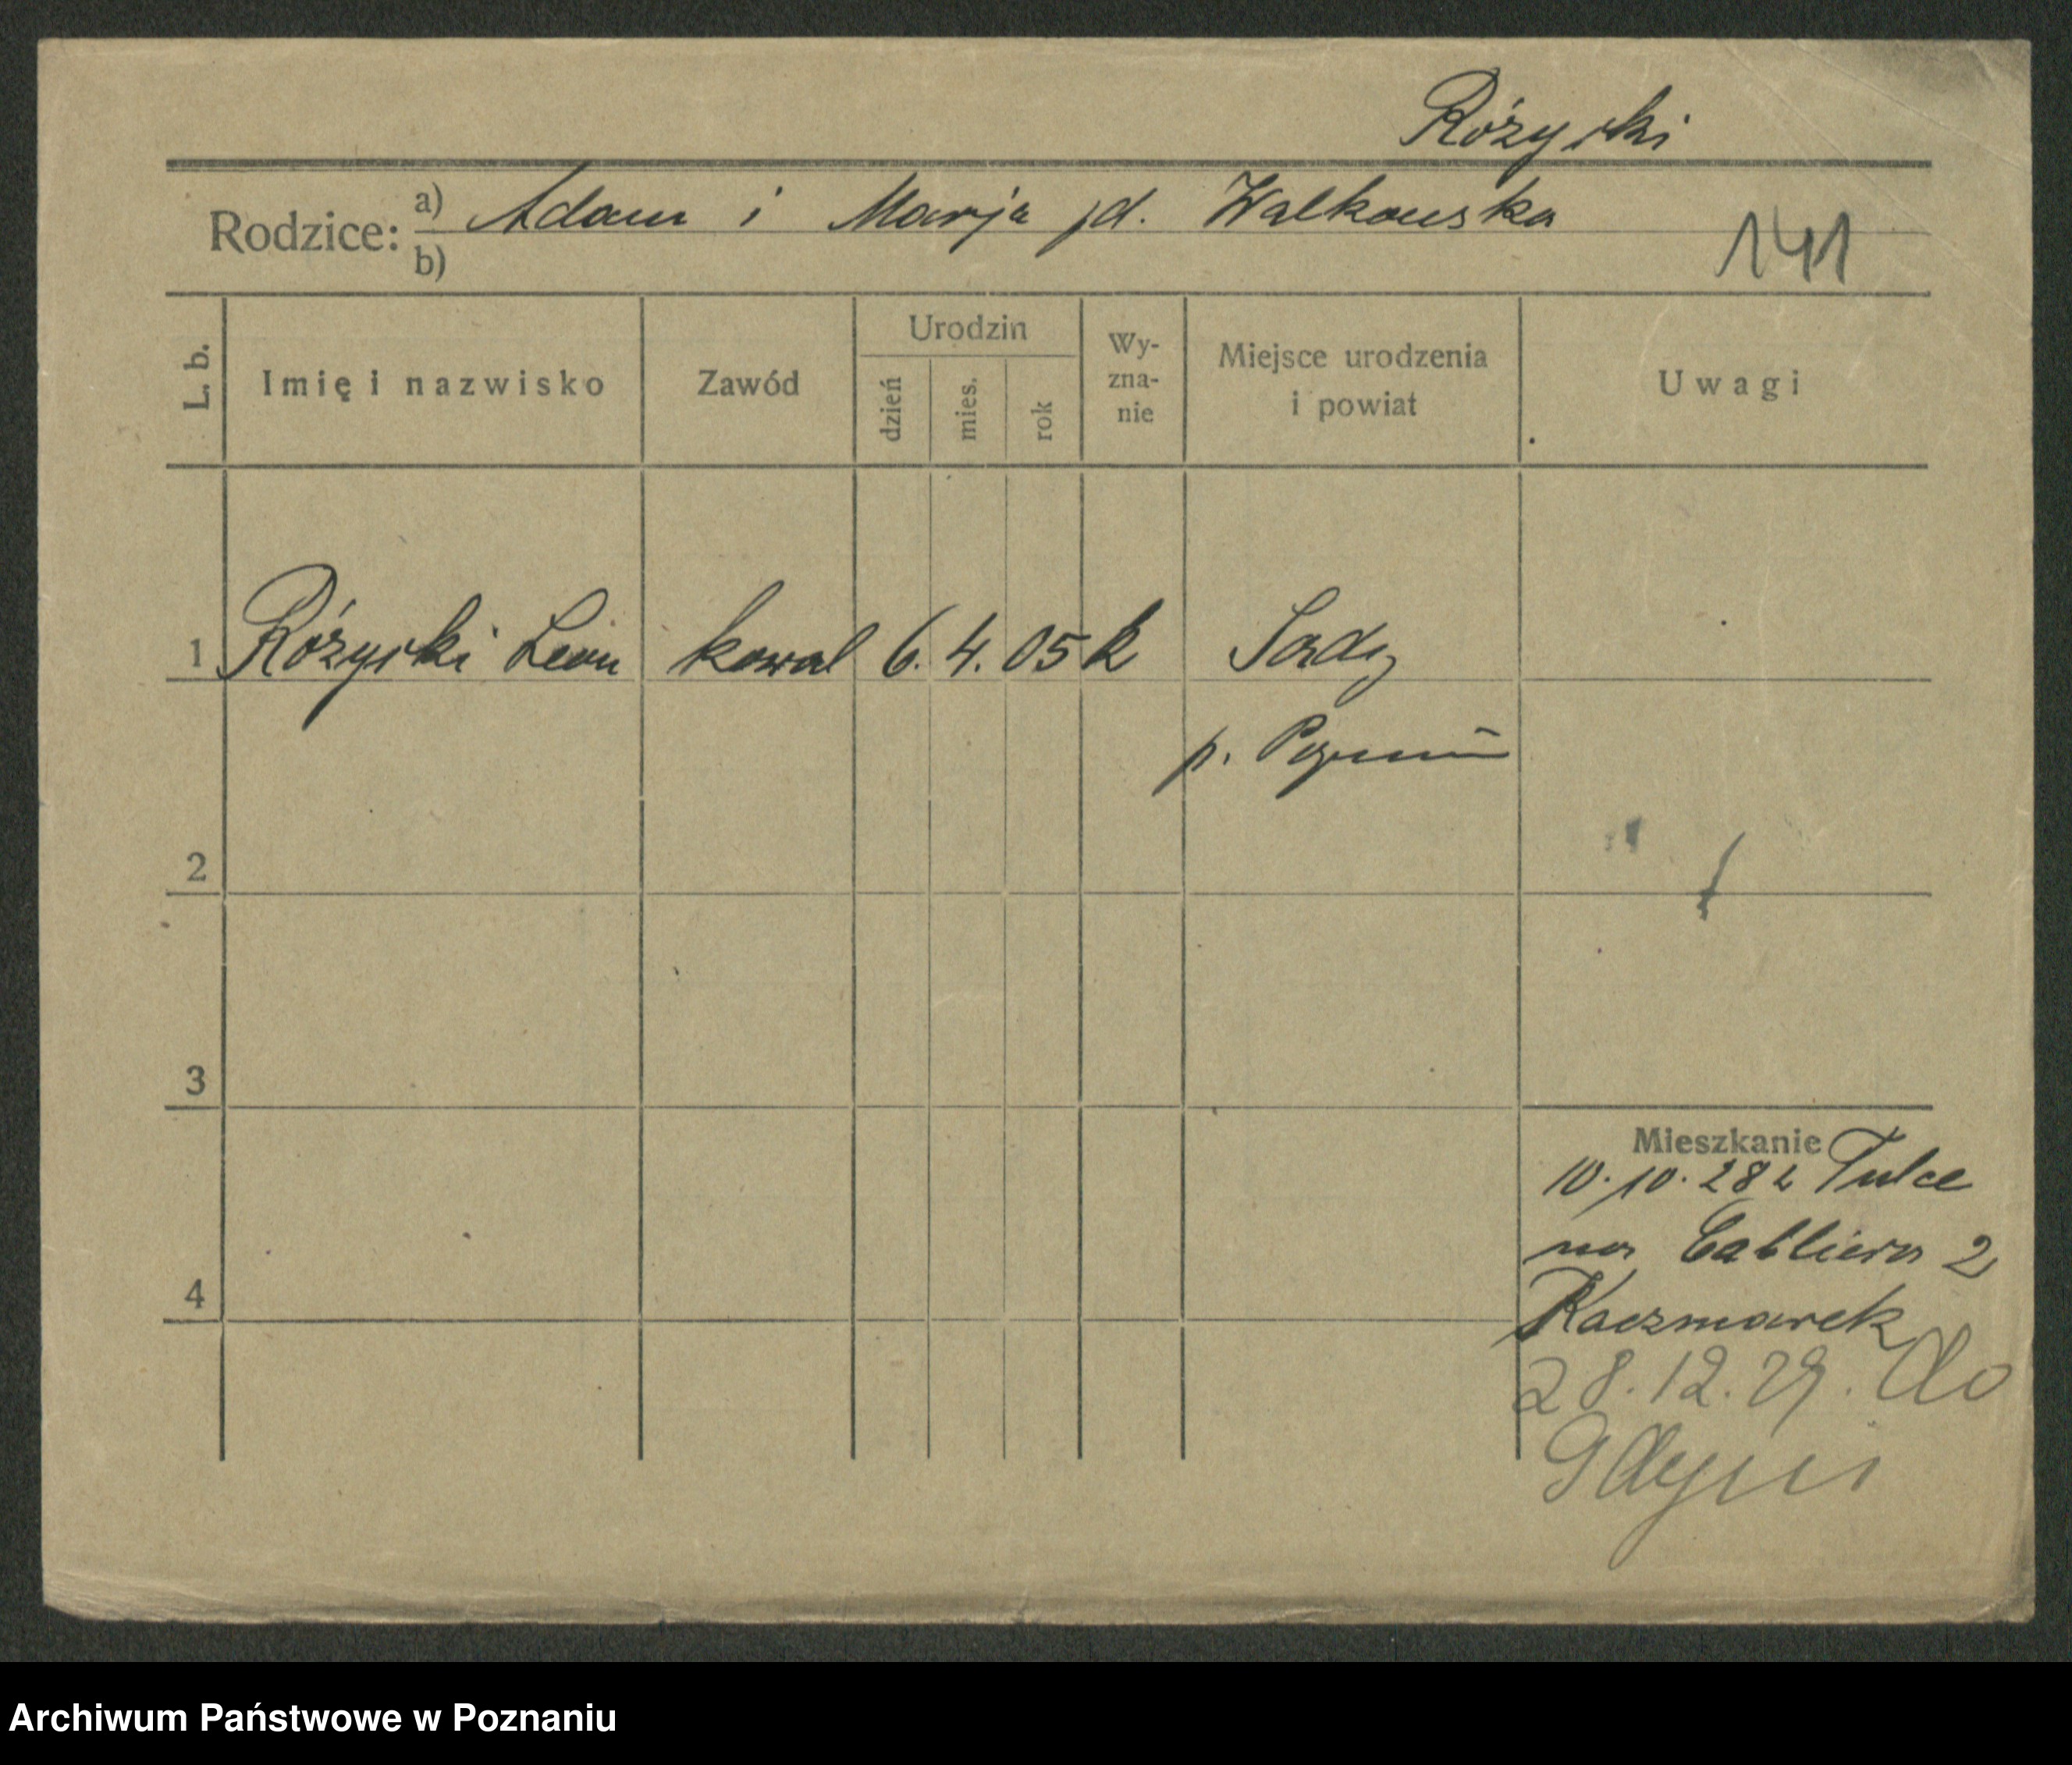 Różycki
Rodzice: a) Adam i Marja jd. Walkowska
b)
141
L. b.
Imię i nazwisko
Zawód
Urodzin
dzień
mies.
rok
Wy-
zna-
nie
Miejsce urodzenia
i powiat
Uwagi
1 Różycki Leon kowal 6. 4. 05 k Sady
p. Poznań
2
3
4
Mieszkanie
10.10.28 z Tulce
na 2
Kaczmarek
28.12.29. do
Gdyni
Archiwum Państwowe w Poznaniu